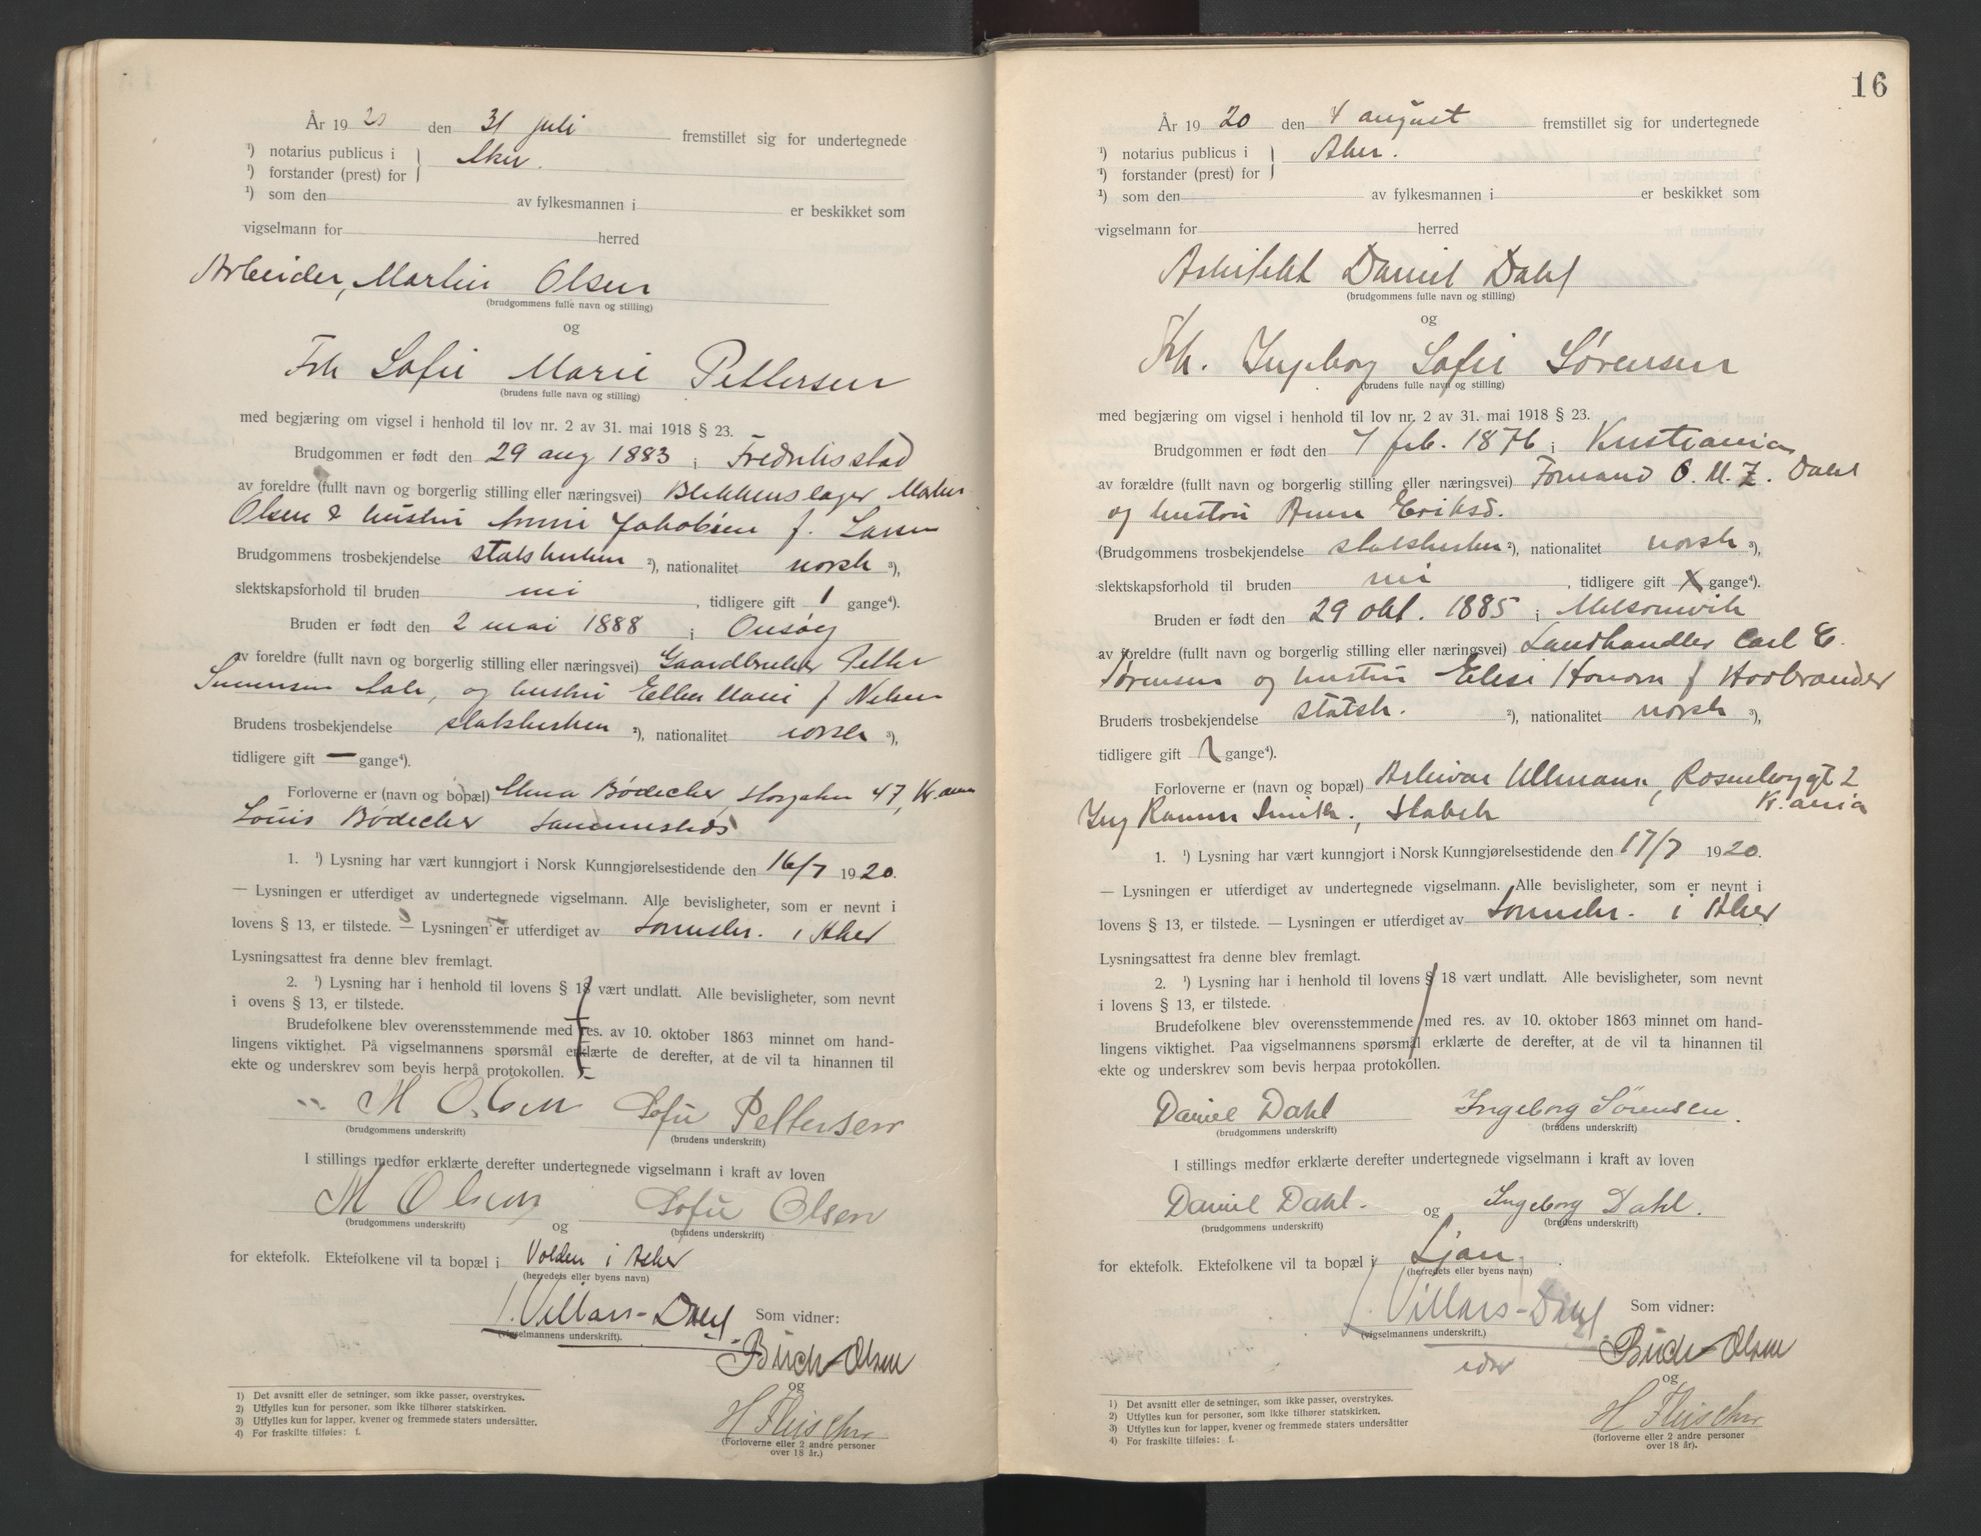 År 1920 den 31 juli fremstillet sig for undertegnede
¹) notarius publicus i } Aker.
¹) forstander (prest) for
¹) som den av fylkesmannen i er beskikket som
vigselmann for herred
Arbeider, Martin Olsen
(brudgommens fulle navn og stilling)
og
Frk Sofie Marie Pettersen
(brudens fulle navn og stilling)
med begjæring om vigsel i henhold til lov nr. 2 av 31. mai 1918 § 23.
Brudgommen er født den 29 aug 1883 i Fredriksstad
av foreldre (fullt navn og borgerlig stilling eller næringsvei) Blikkenslager Martin
Olsen & hustru Annie Jakobsen f. Larsen
Brudgommens trosbekjendelse statskirken ²), nationalitet norsk ³),
slektskapsforhold til bruden nei , tidligere gift 1 gange⁴).
Bruden er født den 2 mai 1888 i Onsøy
av foreldre (fullt navn og borgerlig stilling eller næringsvei) Gaardbruker Petter
og hustru Ellen Marie f Nilsen
Brudens trosbekjendelse statskirken ²), nationalitet norsk ³),
tidligere gift — gange⁴).
Forloverne er (navn og bopæl) Bødecher, Storgaten 47, Kr.ania
Louis Bødecher sammesteds
1. ¹) Lysning har vært kunngjort i Norsk Kunngjørelsestidende den 16/7 1920.
— Lysningen er utferdiget av undertegnede vigselmann. Alle bevisligheter, som er nevnt i
lovens § 13, er tilstede. — Lysningen er utferdiget av Sorenskr. i Aker
Lysningsattest fra denne blev fremlagt.
2. ¹) Lysning har i henhold til lovens § 18 vært undlatt. Alle bevisligheter, som nevnt
i ovens § 13, er tilstede.
Brudefolkene blev overensstemmende med res. av 10. oktober 1863 minnet om hand-
lingens viktighet. På vigselmannens spørsmål erklærte de derefter, at de vil ta hinannen til
ekte og underskrev som bevis herpå protokollen.
M Olsen Sofie Pettersen
(brudgommens underskrift) (brudens underskrift)
I stillings medfør erklærte derefter undertegnede vigselmann i kraft av loven
M Olsen og Sofie Olsen
(brudgommens underskrift) (brudens underskrift)
for ektefolk. Ektefolkene vil ta bopæl i Volden i Aker
(herredets eller byens navn)
J. Villars-Dahl Som vidner:
(vigselmannens underskrift).
Buch-Olsen
og
H Fleischer
(Forloverne eller 2 andre personer
over 18 år.)
1) Det avsnitt eller de setninger, som ikke passer, overstrykes.
2) Utfylles kun for personer, som ikke tilhører statskirken.
3) Utfylles kun for lapper, kvener og fremmede staters undersåtter.
4) For fraskilte tilføies: f.
16
År 1920 den 4 august fremstillet sig for undertegnede
¹) notarius publicus i } Aker.
¹) forstander (prest) for
¹) som den av fylkesmannen i er beskikket som
vigselmann for herred
Arkitekt Daniel Dahl
(brudgommens fulle navn og stilling)
og
Frk. Ingeborg Sofie Sørensen
(brudens fulle navn og stilling)
med begjæring om vigsel i henhold til lov nr. 2 av 31. mai 1918 § 23.
Brudgommen er født den 7 feb. 1876 i Kristiania
av forældre (fullt navn og borgerlig stilling eller næringsvei) Formand O. M. Z. Dahl
og hustru Anne Eriksd.
(Brudgommens trosbekjendelse statskirken ²), nationalitet norsk ³),
slektskapsforhold til bruden nei , tidligere gift gange⁴).
Bruden er født den 29 okt. 1885 i Melsomvik
av foreldre (fullt navn og borgerlig stilling eller næringsvei) Landhandler Carl E.
Sørensen og hustru Elise f
Brudens trosbekjendelse statsk. ²), nationalitet norsk ³),
tidligere gift gange⁴).
Forloverne er (navn og bopæl) Arkivar Ullmann, Rosenborggt 2
Kr.ania
Ing Smith, Stabek
1. ¹) Lysning har vært kunngjort i Norsk Kunngjørelsestidende den 17/7 1920.
— Lysningen er utferdiget av undertegnede vigselmann. Alle bevisligheter, som er nevnt i
lovens § 13, er tilstede. — Lysningen er utferdiget av Sorenskr. i Aker
Lysningsattest fra denne blev fremlagt.
2. ¹) Lysning har i henhold til lovens § 18 vært undlatt. Alle bevisligheter, som nevnt
i lovens § 13, er tilstede.
Brudefolkene blev overensstemmende med res. av 10. oktober 1863 minnet om hand-
lingens viktighet. Paa vigselmannens spørsmål erklærte de derefter, at de vil ta hinannen til
ekte og underskrev som bevis herpaa protokollen.
Daniel Dahl Ingeborg Sørensen.
(brudgommens underskrift) (brudens underskrift)
I stillings medfør erklærte derefter undertegnede vigselmann i kraft av loven
Daniel Dahl. og Ingeborg Dahl.
(brudgommens underskrift) (brudens underskrift)
for ektefolk. Ektefolkene vil ta bopæl i Ljan.
(herredets eller byens navn)
J. Villars-Dahl Som vidner:
(vigselmannens underskrift.)
Buch-Olsen
og
H Fleischer
(forloverne eller 2 andre personer
over 18 år).
1) Det avsnitt eller de setninger, som ikke passer, overstrykes.
2) Utfylles kun for personer, som ikke tilhører statskirken.
3) Utfylles kun for lapper, kvener og fremmede staters undersåtter
4) For fraskilte tilføies: f.